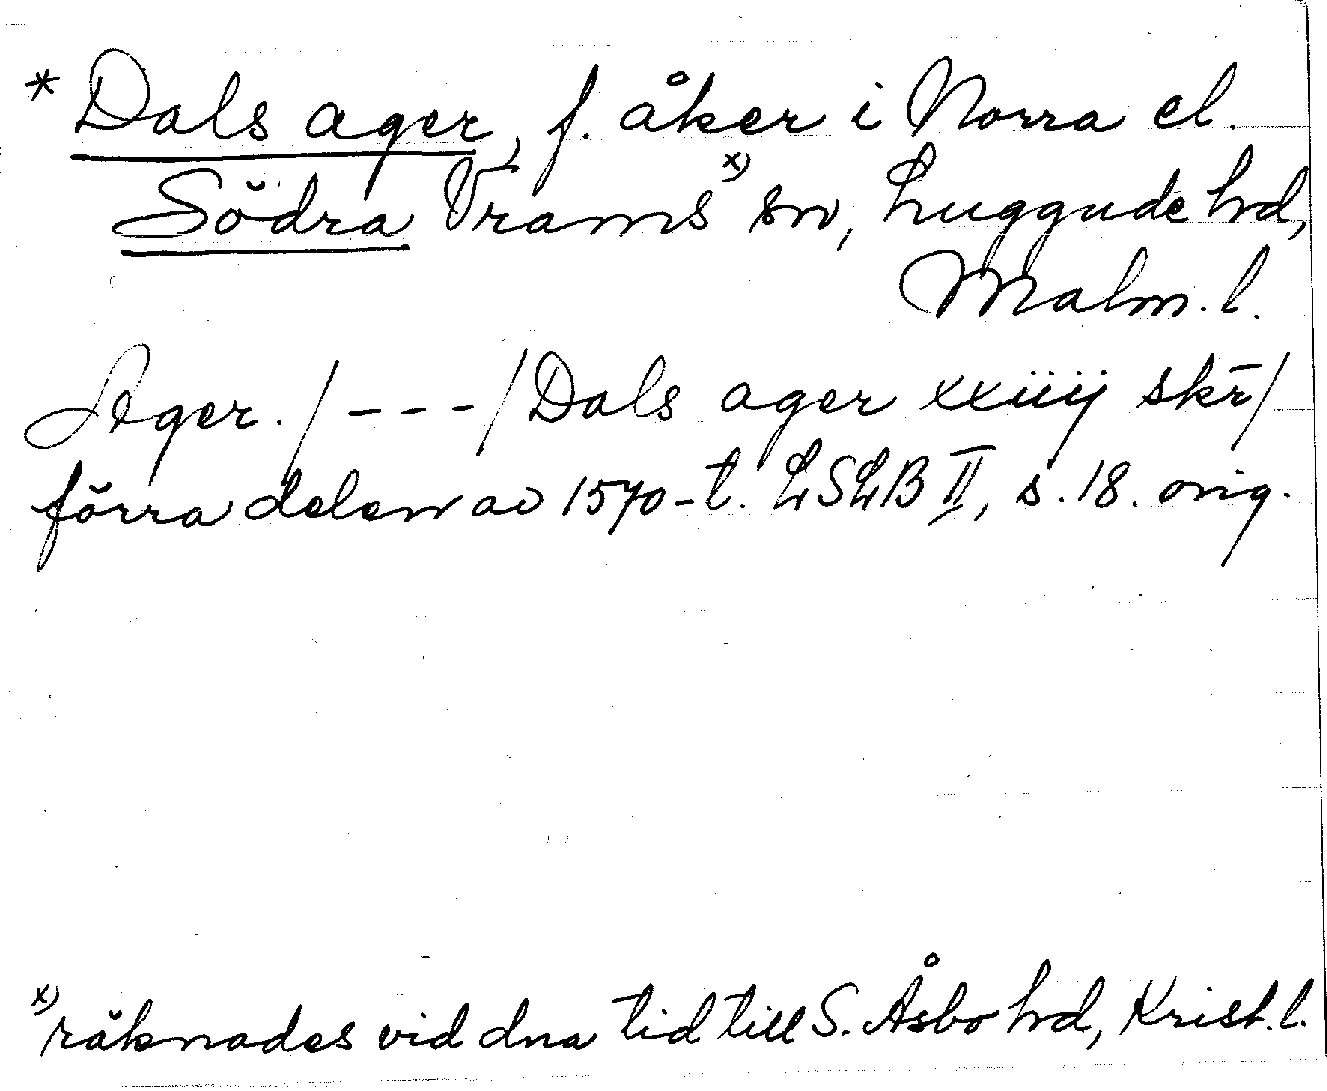 * Dals ager, f. åker i Norra el.
Södra Vrams x) sn, Luggude hd,
Malm. l.
Ager. / - - - / Dals ager xxiiij skr̄ /
förra delen av 1570-t. LSLB II, s. 18. orig.
x) räknades vid dna tid till S. Åsbo hd, Krist. l.